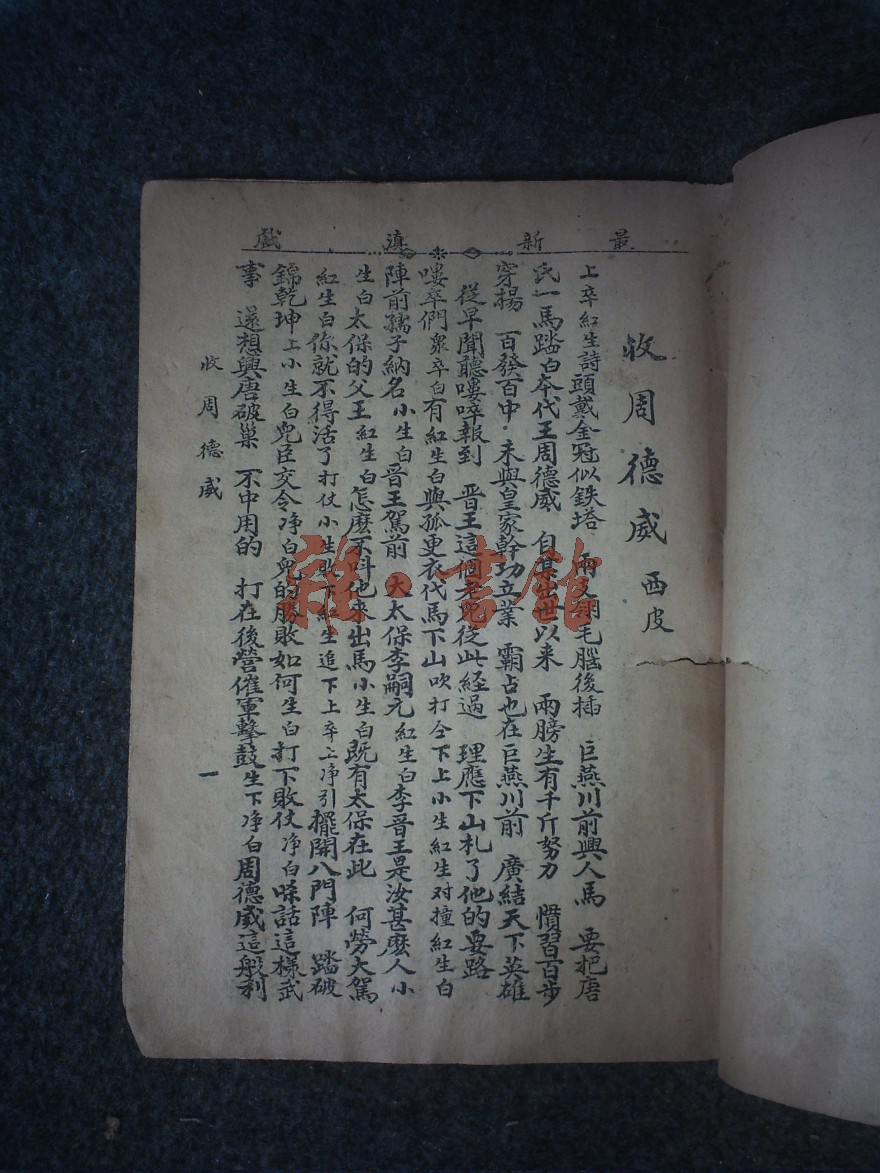 最新滇戲
收周德威 西皮
上卒紅生詩頭戴金冠似鉄塔 兩支翎毛腦後插 巨燕川前興人馬 要把唐
氏一馬踏白本代王周德威 自某出世以来 兩膀生有千斤努力 慣習百步
穿揚 百發百中·未與皇家幹功立業 霸占也在巨燕川前 廣結天下英雄
從早聞聽嘍啐報到 晋王這個老兒從此経過 理應下山札了他的要路
嘍卒們衆卒白有紅生白與孤更衣代馬下山吹打仝下上小生紅生对撞紅生白
陣前孺子納名小生白晋王駕前 大太保李嗣元紅生白李晋王是汝甚麽人小
生白太保的父王紅生白怎麽不呌他来出馬小生白既有太保在此 何勞大駕
紅生白你就不得活了打仗小生敗下紅生追下上卒上净引擺開八門陣 踏破
錦乾坤上小生白兒臣交令净白兒的勝敗如何生白打下敗仗净白咲話這様武
事 遂想興唐破巢 不中用的 打在後營催軍擊鼓生下净白周德威這般利
收周德威
一
雜·書館